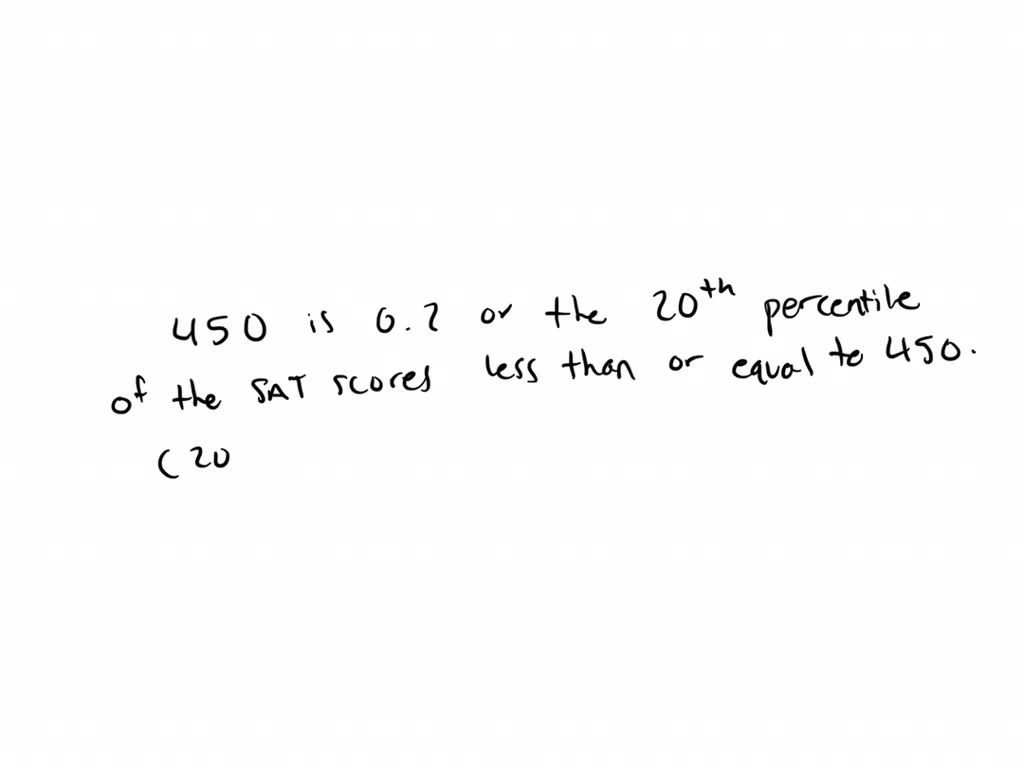 450 is 0.2 or the 20th percentile
of the SAT scores less than or equal to 450.
(20